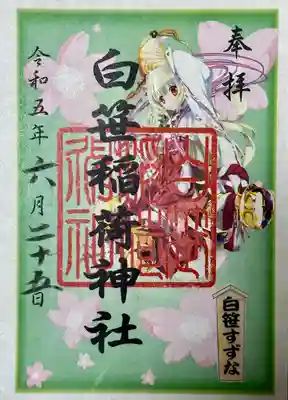 奉拝
白笹稲荷神社
令和五年
六月二十五日
白笹すずな